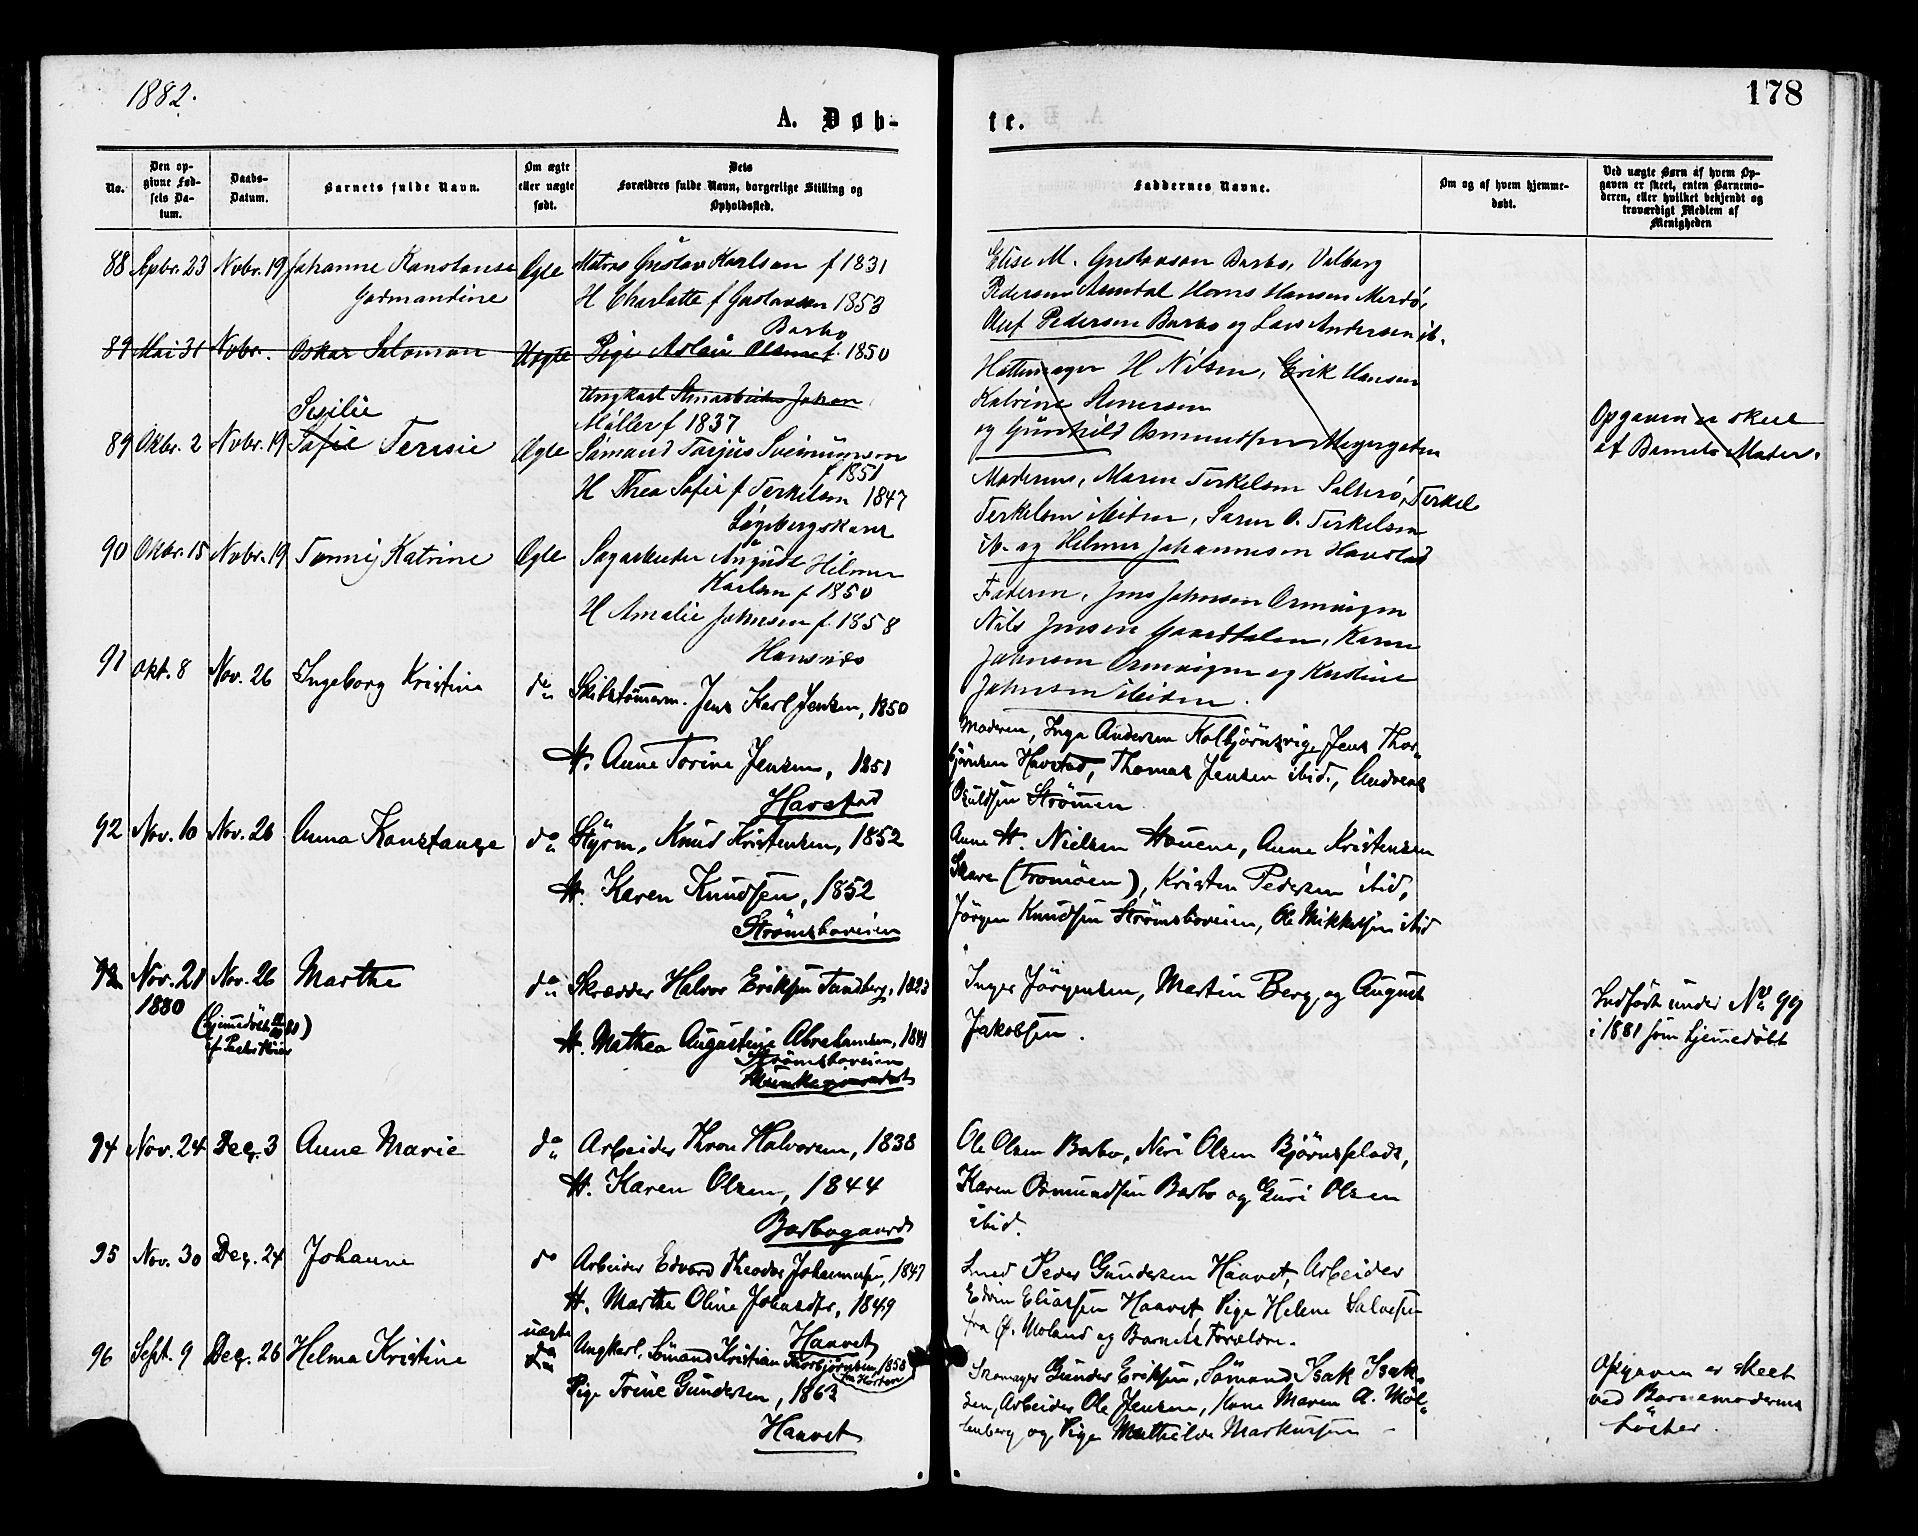 1882.
178
A. Døb-
te.
No.
Den op-
givne Fød-
sels Da-
tum.
Daabs-
Datum.
Barnets fulde Navn.
Om ægte
eller uægte
født.
Dets
Forældres fulde Navn, borgerlige Stilling og
Opholdssted.
Faddernes Navne.
Om og af hvem hjemme-
døbt.
Ved uægte Børn af hvem Op-
gaven er skeet, enten Barnemo-
deren, eller hvilket bekjendt og
troværdigt Medlem af
Menigheden
88 23 Nvbr. 19 Johanne Konstanse Ægte Matros Gustav Karlsen f 1831
H Charlotte f Gustavsen 1853
Barbo
Elise M. Gustavsen Barbo, Valborg
Pedersen Arendal Hansen Merdø,
Oluf Pedersen Barbo og Lars Andersen ib.
89 Mai 31 Nvbr. Oskar Salomon Uægte Pige Aslau Olsen f. 1850
Ungkarl Johan
Møller f 1837
H Nilsen, Erik Hansen
Katrine
og Gunhild Osmundsen
Opgaven er skeet
af Barnets Moder.
Sesilie
89 Oktbr. 2 Nvbr. 19 Sofie Teresie Ægte Sømand Tarjus
f 1851
H Thea Sofie f Terkelsen 1847
Moderen, Maren Terkelsen Salterø, Terkel
Terkelsen ibidem, Søren O. Terkelsen
ib. og Helmer Johannesen Havstad
90 Oktbr. 15 Nvbr. 19 Tomine Katrine Ægte Sagarbeider August Hilmer
Karlsen f 1850
H Amalie Johnsen f. 1858
Faderen, Jens Johnsen
Nils Jensen Karen
Johnsen og Kristine
Johnsen ibidem.
91 Okt. 8 Nov. 26 Ingeborg Kristine do Skibstømmerm. Jens Karl Jensen, 1850
H. Anne Torine Jensen, 1851
Havstad
Moderen, Inga Andersen Kolbjørnsvig, Jens Thor-
bjørnsen Havstad, Thomas Jensen ibid., Andreas
Osuldsen Strømmen
92 Nov. 10 Nov. 26 Anna Konstanze do Styrm. Knud Kristensen, 1852
H. Karen Knudsen, 1852
Strømsboveien
Anne H. Nielsen Houene, Anne Kristensen
Skare (Tromøen), Kristen Pedersen ibid,
Jørgen Knudsen Strømsboveien, Ole Mikkelsen ibid
93 Nov. 21 Nov. 26 Marthe do Skrædder Halvor Eriksen Sandberg, 1823
1880
H. Mathea Augustine Abrahamsen, 1841
Strømsboveien
Inger Jørgensen, Martin Berg og August
Jakobsen.
Indført under No 99
i 1881 som hjemmedøbt
94 Nov. 24 Dec. 3 Anne Marie do Arbeider Thron Halvorsen, 1838
H. Karen Olsen, 1844
Barbogaard
Ole Olsen Barbo, Neri Olsen Bjørnsplads,
Karen Osmundsen Barbo og Guri Olsen
ibid.
95 Nov. 30 Dec. 24 Johanne do Arbeider Edvard Theodor Johannesen, 1847
H. Marthe Oline Johnsdtr, 1849
Haavet
Smed Peder Gundersen Haavet, Arbeider
Edvin Eliassen Haavet, Pige Helene Salvesen
fra Ø. Moland og Barnets Forældre.
96 Sept. 9 Dec. 26 Helma Kristine uægte Ungkarl, Sømand Kristian Thorbjørnsen, 1858
fra Horten
Pige Trine Gundersen, 1863
Haavet
Skomager Gunder Eriksen, Sømand Isak Isak-
sen, Arbeider Ole Jensen, Kone Maren A. Mol-
lenberg og Pige Mathilde Markussen
Opgaven er skeet
ved Barnemoderens
Søster.